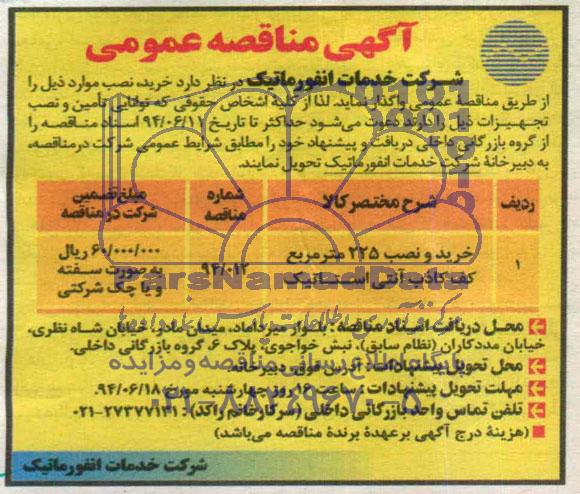 آگهی مناقصه عمومی
شرکت خدمات انفورماتیک در نظر دارد خرید، نصب موارد ذیل را
از طریق مناقصه عمومی واگذار نماید. لذا از کلیه اشخاص حقوقی که توانایی تأمین و نصب
تجهیزات ذیل را دارند دعوت می‌شود حداکثر تا تاریخ ۹۴/۰۶/۱۱ اسناد مناقصه را
از گروه بازرگانی داخلی دریافت و پیشنهاد خود را مطابق شرایط عمومی شرکت در مناقصه،
به دبیرخانهٔ شرکت خدمات انفورماتیک تحویل نمایند.
ردیف شرح مختصر کالا شماره مناقصه مبلغ تضمین شرکت در مناقصه
۱ خرید و نصب ۲۲۵ مترمربع کف کاذب آنتی استاتیک ۹۴/۰۱۲ ۶۰/۰۰۰/۰۰۰ ریال به صورت سفته و یا چک شرکتی
ParsNamadData
مرکز فرآوری اطلاعات پارس نماد داده‌ها
محل دریافت اسناد مناقصه: بلوار میرداماد، میدان مادر، خیابان شاه نظری،
خیابان مددکاران (نظام سابق)، نبش خواجوی، پلاک ۶، گروه بازرگانی داخلی.
محل تحویل پیشنهادات: آدرس فوق، دبیرخانه.
پایگاه اطلاع رسانی مناقصه و مزایده
مهلت تحویل پیشنهادات: ساعت ۱۶ روز چهارشنبه مورخ ۹۴/۰۶/۱۸.
تلفن تماس واحد بازرگانی داخلی (سرکار خانم راکد): ۲۷۳۷۷۱۳۱-۰۲۱
۰۲۱-۸۸۳۴۹۶۷۰-۵
(هزینهٔ درج آگهی بر عهدهٔ برندهٔ مناقصه می‌باشد)
شرکت خدمات انفورماتیک